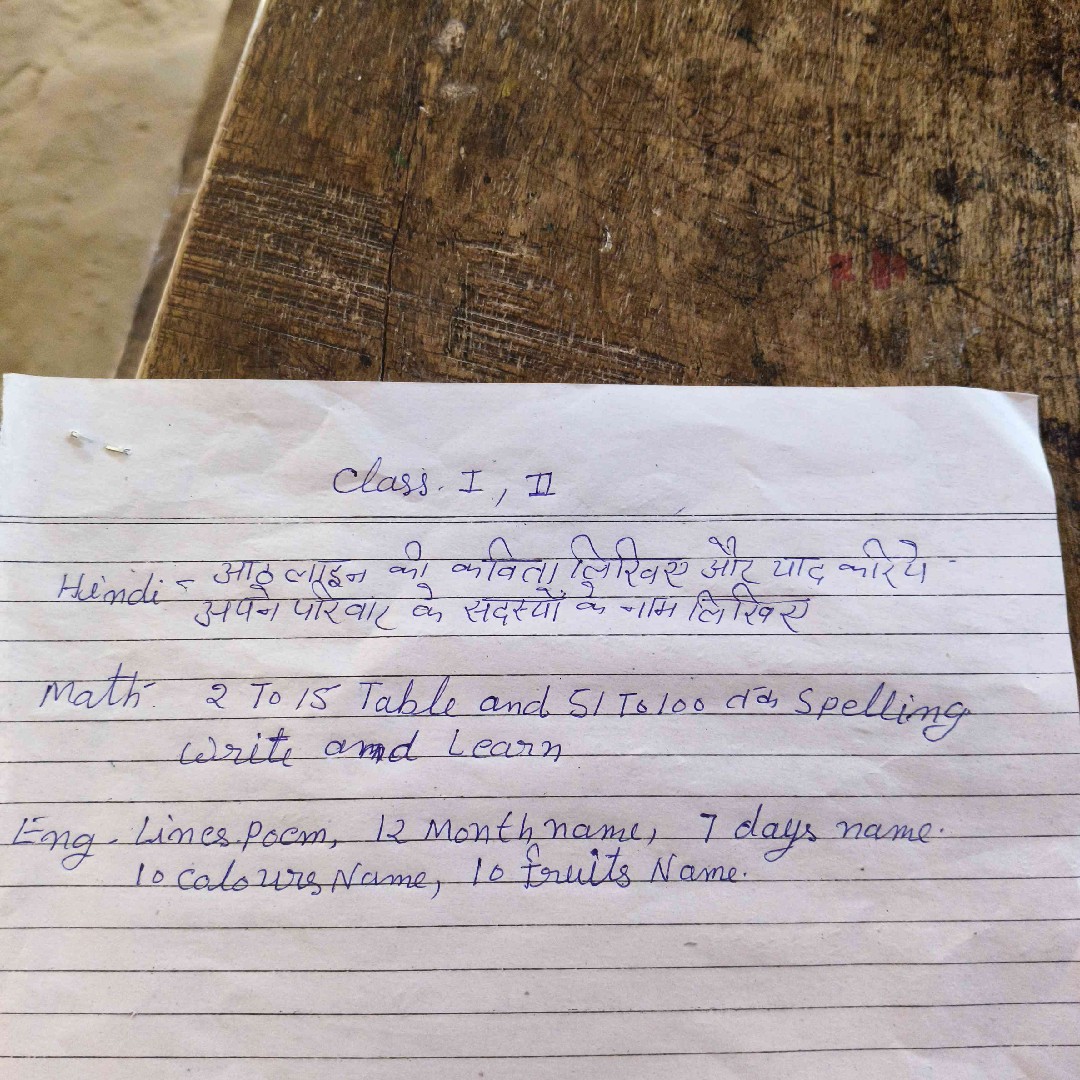 Class. I, II
Hindi - आठ लाइन की कविता लिखिए और याद करिये -
अपने परिवार के सदस्यों के नाम लिखिए
Math- 2 To 15 Table and 51 To 100 तक Spelling
Write and Learn
Eng - Lines Poem, 12 Month name, 7 days name.
10 Colours Name, 10 fruits Name.